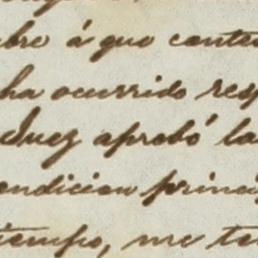 bre á que conte
ha ocurrido res
Juez aprobó la
ondicion princi
tiempo, me te